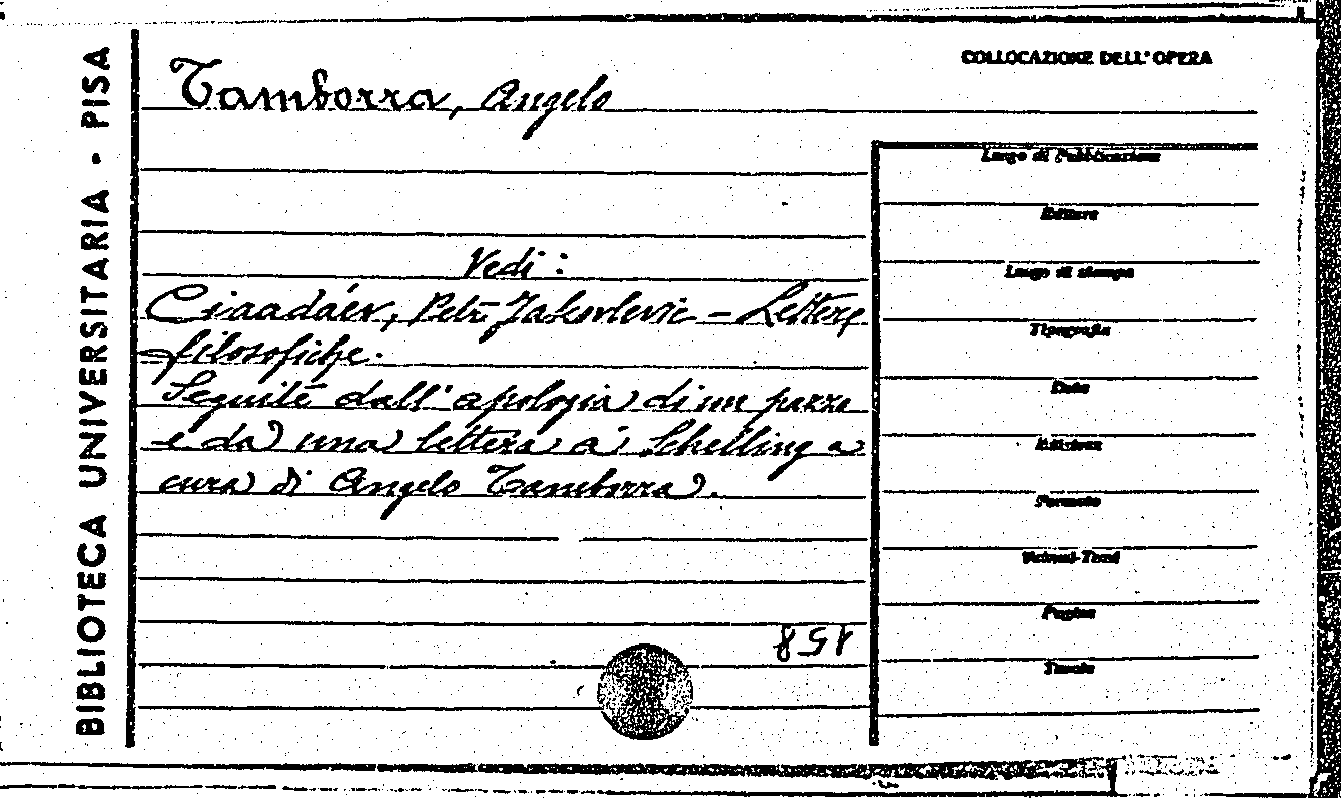 BIBLIOTECA UNIVERSITARIA - PISA
COLLOCAZIONE DELL'OPERA
Tamborra, Angelo
Vedi :
Ciaadáev, Petr Jakovlevic - Lettere
filosofiche.
Seguite dall'apologia di un pazzo
e da una lettera a Schelling a
cura di Angelo Tamborra.
Luogo di Pubblicazione
Editore
Luogo di stampa
Tipografia
Data
Edizione
Formato
Volumi-Tomi
Pagine
Tavole